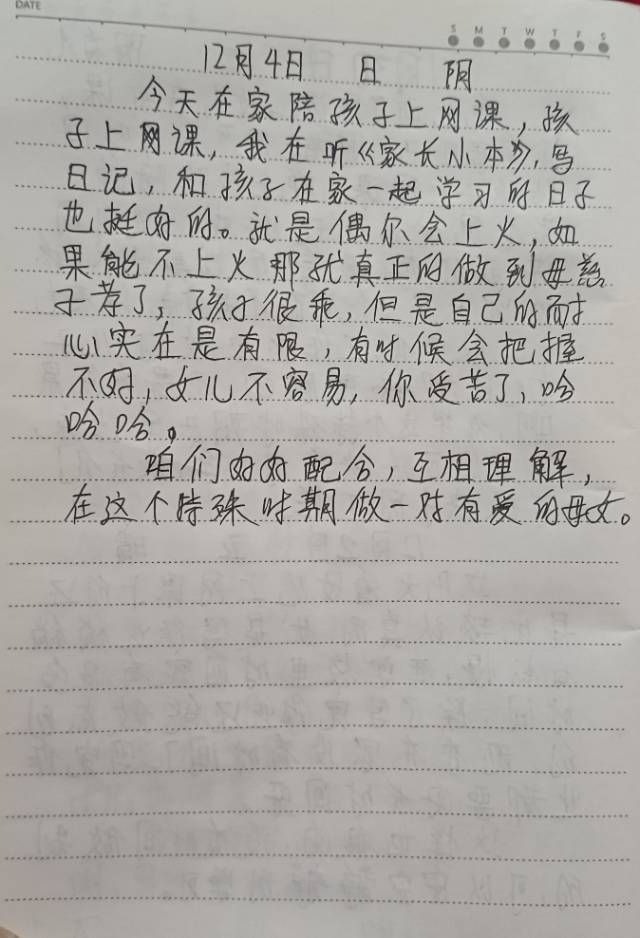 DATE
S M T W T F S
12月4日 日 阴
今天在家陪孩子上网课，孩
子上网课，我在听《家长小本》，写
日记，和孩子在家一起学习的日子
也挺好的。就是偶尔会上火，如
果能不上火那就真正的做到母慈
子荐了，孩子很乖，但是自己的耐
心实在是有限，有时候会把握
不好，女儿不容易，你受苦了，哈
哈哈。
咱们好好配合，互相理解，
在这个特殊时期做一对有爱的母女。